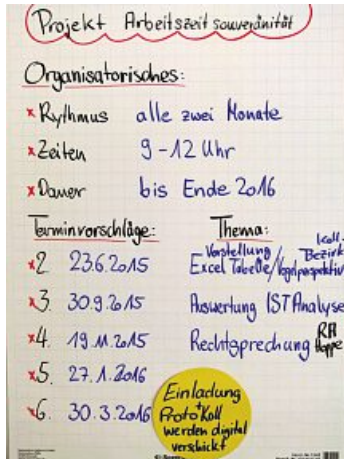 Projekt Arbeitszeitsouveränität
Organisatorisches:
x Rythmus alle zwei Monate
x Zeiten 9-12 Uhr
x Dauer bis Ende 2016
Terminvorschläge: Thema:
x 2. 23.6.2015 Vorstellung Excel Tabelle/Vogelperspektive Koll. Bezirk
x 3. 30.9.2015 Auswertung IST Analyse
x 4. 19.11.2015 Rechtsprechung RA Hoppe
x 5. 27.1.2016
x 6. 30.3.2016
Einladung
+
Protokoll
werden digital
verschickt